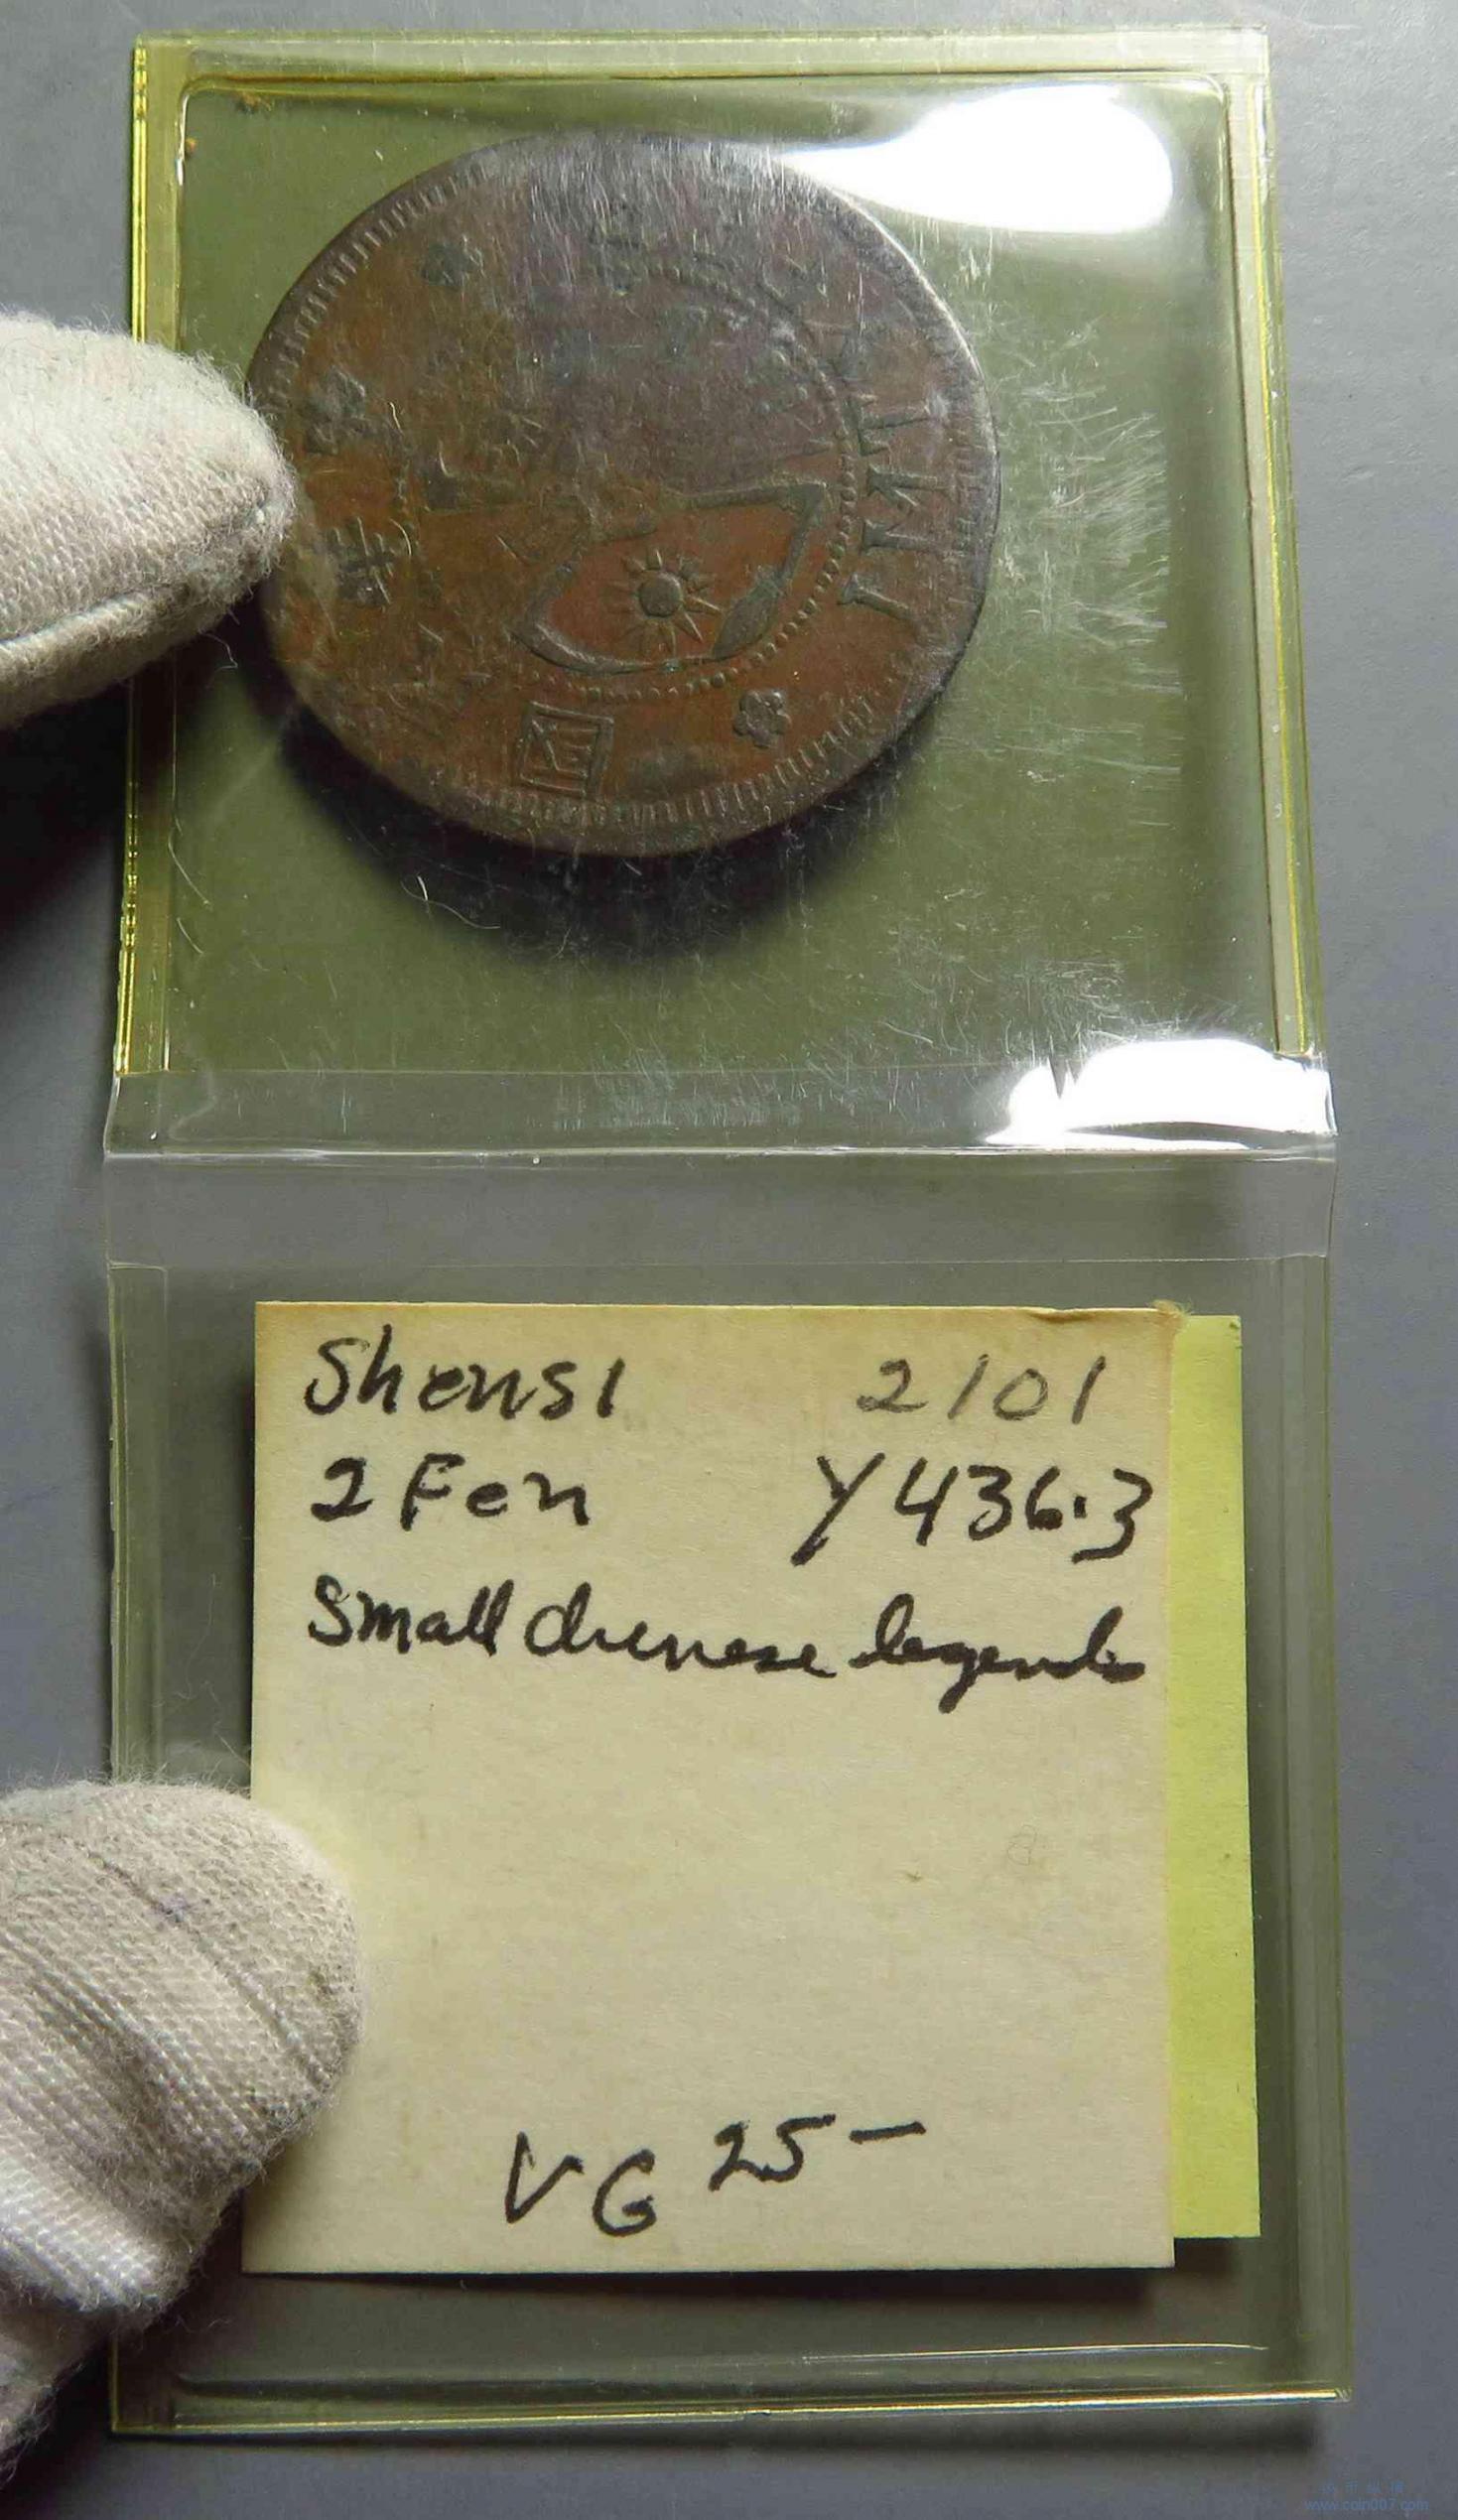 IMT
國
Shensi 2101
2 Fen Y436.3
Small chinese legends
VG 25-
www.coin007.com